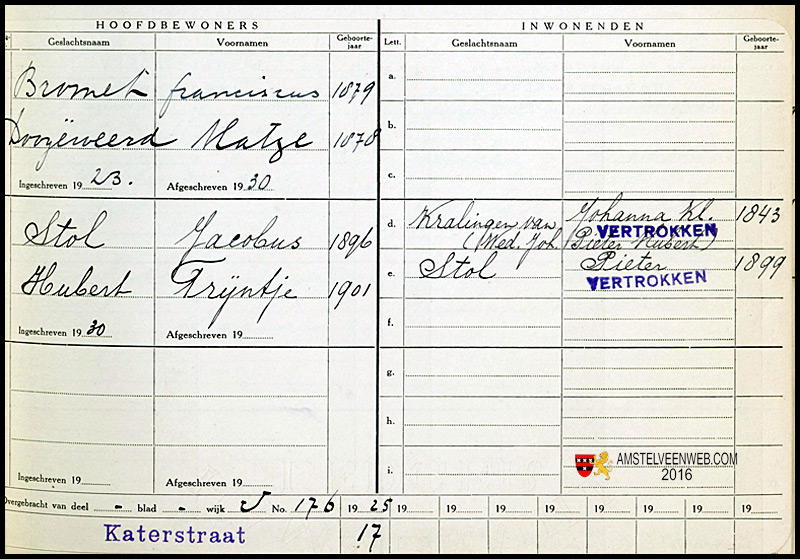 HOOFDBEWONERS
INWONENDEN
Geslachtsnaam Voornamen Geboorte-jaar Lett. Geslachtsnaam Voornamen Geboorte-jaar
Bromet Franciscus 1879 a.
Dooyeweerd 1878 b.
Ingeschreven 19 23. Afgeschreven 19 30 c.
Stol Jacobus 1896 d. Kralingen van Johanna Kl. 1843
(Wed. Joh. Pieter Hubert)
VERTROKKEN
Hubert Trijntje 1901 e. Stol Pieter 1899
VERTROKKEN
Ingeschreven 19 30 Afgeschreven 19 f.
g.
h.
Ingeschreven 19 Afgeschreven 19 i.
AMSTELVEENWEB.COM
2016
Overgebracht van deel - blad - wijk J No. 176 19 25 19 19 19 19 19 19 19 19
Katerstraat 17